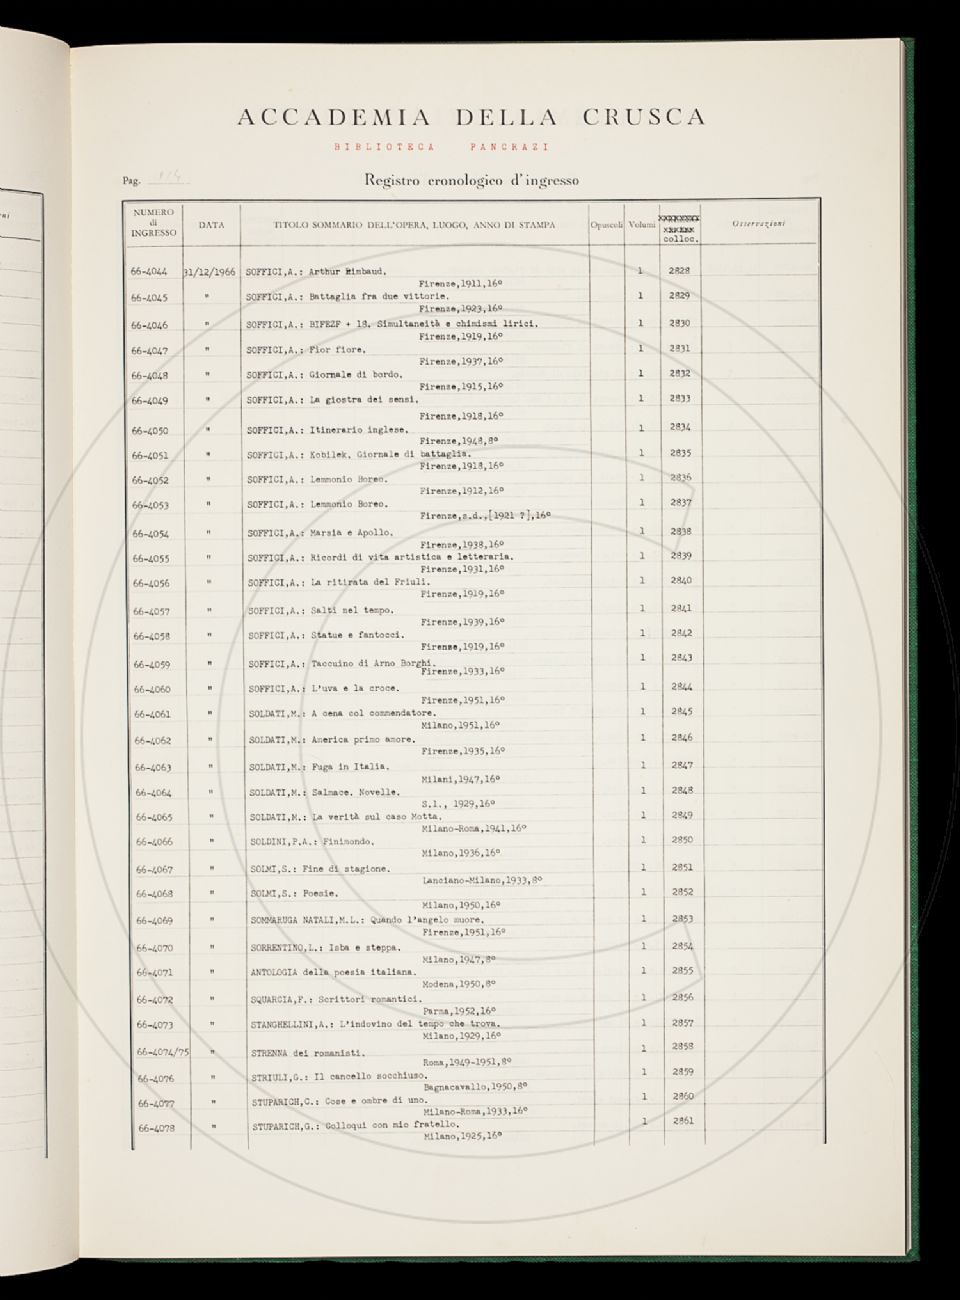 ACCADEMIA DELLA CRUSCA
BIBLIOTECA PANCRAZI
Pag.
Registro cronologico d'ingresso
NUMERO di INGRESSO DATA TITOLO SOMMARIO DELL'OPERA, LUOGO, ANNO DI STAMPA Opuscoli Volumi colloc. Osservazioni
66-4044 31/12/1966 SOFFICI,A.: Arthur Rimbaud. 1 2828
Firenze,1911,16º
66-4045 " SOFFICI,A.: Battaglia fra due vittorie. 1 2829
Firenze,1923,16º
66-4046 " SOFFICI,A.: BIFEZF + 18. Simultaneità e chimismi lirici. 1 2830
Firenze,1919,16º
66-4047 " SOFFICI,A.: Fior fiore. 1 2831
Firenze,1937,16º
66-4048 " SOFFICI,A.: Giornale di bordo. 1 2832
Firenze,1915,16º
66-4049 " SOFFICI,A.: La giostra dei sensi. 1 2833
Firenze,1918,16º
66-4050 " SOFFICI,A.: Itinerario inglese. 1 2834
Firenze,1948,8º
66-4051 " SOFFICI,A.: Kobilek. Giornale di battaglia. 1 2835
Firenze,1918,16º
66-4052 " SOFFICI,A.: Lemmonio Boreo. 1 2836
Firenze,1912,16º
66-4053 " SOFFICI,A.: Lemmonio Boreo. 1 2837
Firenze,s.d.,[1921 ?],16º
66-4054 " SOFFICI,A.: Marsia e Apollo. 1 2838
Firenze,1938,16º
66-4055 " SOFFICI,A.: Ricordi di vita artistica e letteraria. 1 2839
Firenze,1931,16º
66-4056 " SOFFICI,A.: La ritirata del Friuli. 1 2840
Firenze,1919,16º
66-4057 " SOFFICI,A.: Salti nel tempo. 1 2841
Firenze,1939,16º
66-4058 " SOFFICI,A.: Statue e fantocci. 1 2842
Firenze,1919,16º
66-4059 " SOFFICI,A.: Taccuino di Arno Borghi. 1 2843
Firenze,1933,16º
66-4060 " SOFFICI,A.: L'uva e la croce. 1 2844
Firenze,1951,16º
66-4061 " SOLDATI,M.: A cena col commendatore. 1 2845
Milano,1951,16º
66-4062 " SOLDATI,M.: America primo amore. 1 2846
Firenze,1935,16º
66-4063 " SOLDATI,M.: Fuga in Italia. 1 2847
Milani,1947,16º
66-4064 " SOLDATI,M.: Salmace. Novelle. 1 2848
S.l., 1929,16º
66-4065 " SOLDATI,M.: La verità sul caso Motta. 1 2849
Milano-Roma,1941,16º
66-4066 " SOLDINI,P.A.: Finimondo. 1 2850
Milano,1936,16º
66-4067 " SOLMI,S.: Fine di stagione. 1 2851
Lanciano-Milano,1933,8º
66-4068 " SOLMI,S.: Poesie. 1 2852
Milano,1950,16º
66-4069 " SOMMARUGA NATALI,M.L.: Quando l'angelo muore. 1 2853
Firenze,1951,16º
66-4070 " SORRENTINO,L.: Isba e steppa. 1 2854
Milano,1947,8º
66-4071 " ANTOLOGIA della poesia italiana. 1 2855
Modena,1950,8º
66-4072 " SQUARCIA,F.: Scrittori romantici. 1 2856
Parma,1952,16º
66-4073 " STANGHELLINI,A.: L'indovino del tempo che trova. 1 2857
Milano,1929,16º
66-4074/75 " STRENNA dei romanisti. 1 2858
Roma,1949-1951,8º
66-4076 " STRIULI,G.: Il cancello socchiuso. 1 2859
Bagnacavallo,1950,8º
66-4077 " STUPARICH,G.: Cose e ombre di uno. 1 2860
Milano-Roma,1933,16º
66-4078 " STUPARICH,G.: Colloqui con mio fratello. 1 2861
Milano,1925,16º